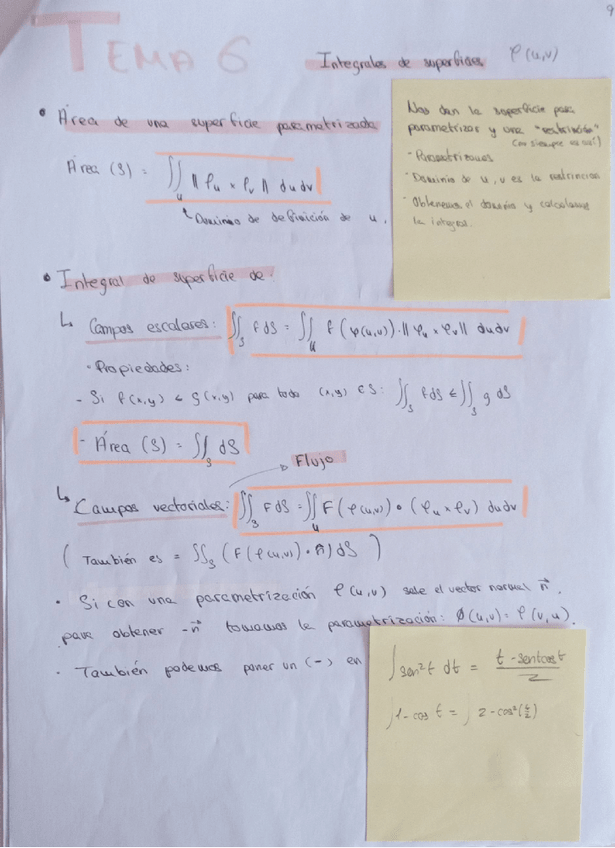 9
TEMA 6
Integrales de superficies φ(u,v)
• Área de una superficie parametrizada
Área (S) = ∬_u ‖φu × φv‖ du dv
↑ Dominio de definición de u.
Nos dan la superficie para
parametrizar y una "restricción"
(no siempre va así)
- Parametrizamos
- Dominio de u, v es la restricción
- Obtenemos el dominio y calculamos
la integral.
• Integral de superficie de:
↳ Campos escalares: ∬_S f dS = ∬_u f(φ(u,v))·‖φu × φv‖ du dv
• Propiedades:
- Si f(x,y) ≤ g(x,y) para todo (x,y) ∈ S: ∬_S f dS ≤ ∬_S g dS
- Área (S) = ∬_S dS
→ Flujo
↳ Campos vectoriales: ∬_S F dS = ∬_u F(φ(u,v)) • (φu × φv) du dv
( También es = ∬_S (F(φ(u,v)) • n̂) dS )
• Si con una parametrización φ(u,v) sale el vector normal n⃗,
para obtener -n⃗ tomamos la parametrización: Ø(u,v) = φ(v,u).
• También podemos poner un (-) en
∫ sen²t dt = (t - sent cost)/2
∫ 1-cos t = ∫ 2-cos²(t/2)